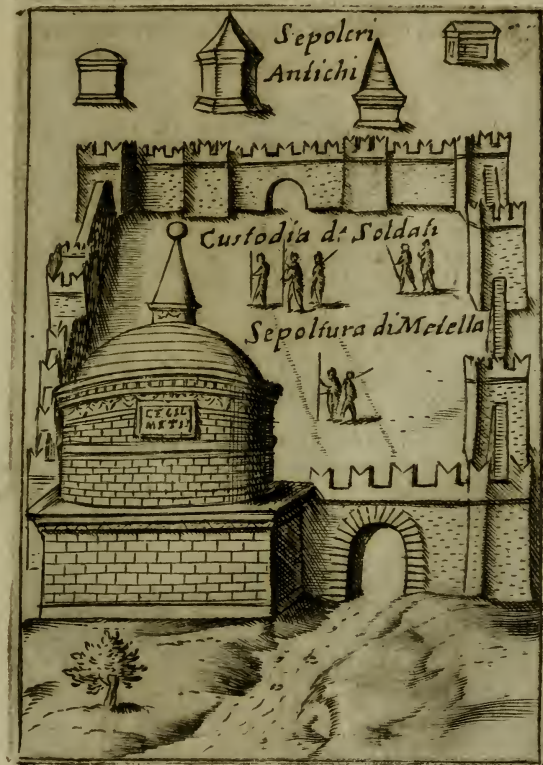 Sepolcri
Antichi
Custodia di Soldati
Sepoltura di Metella
CECIL
METEL